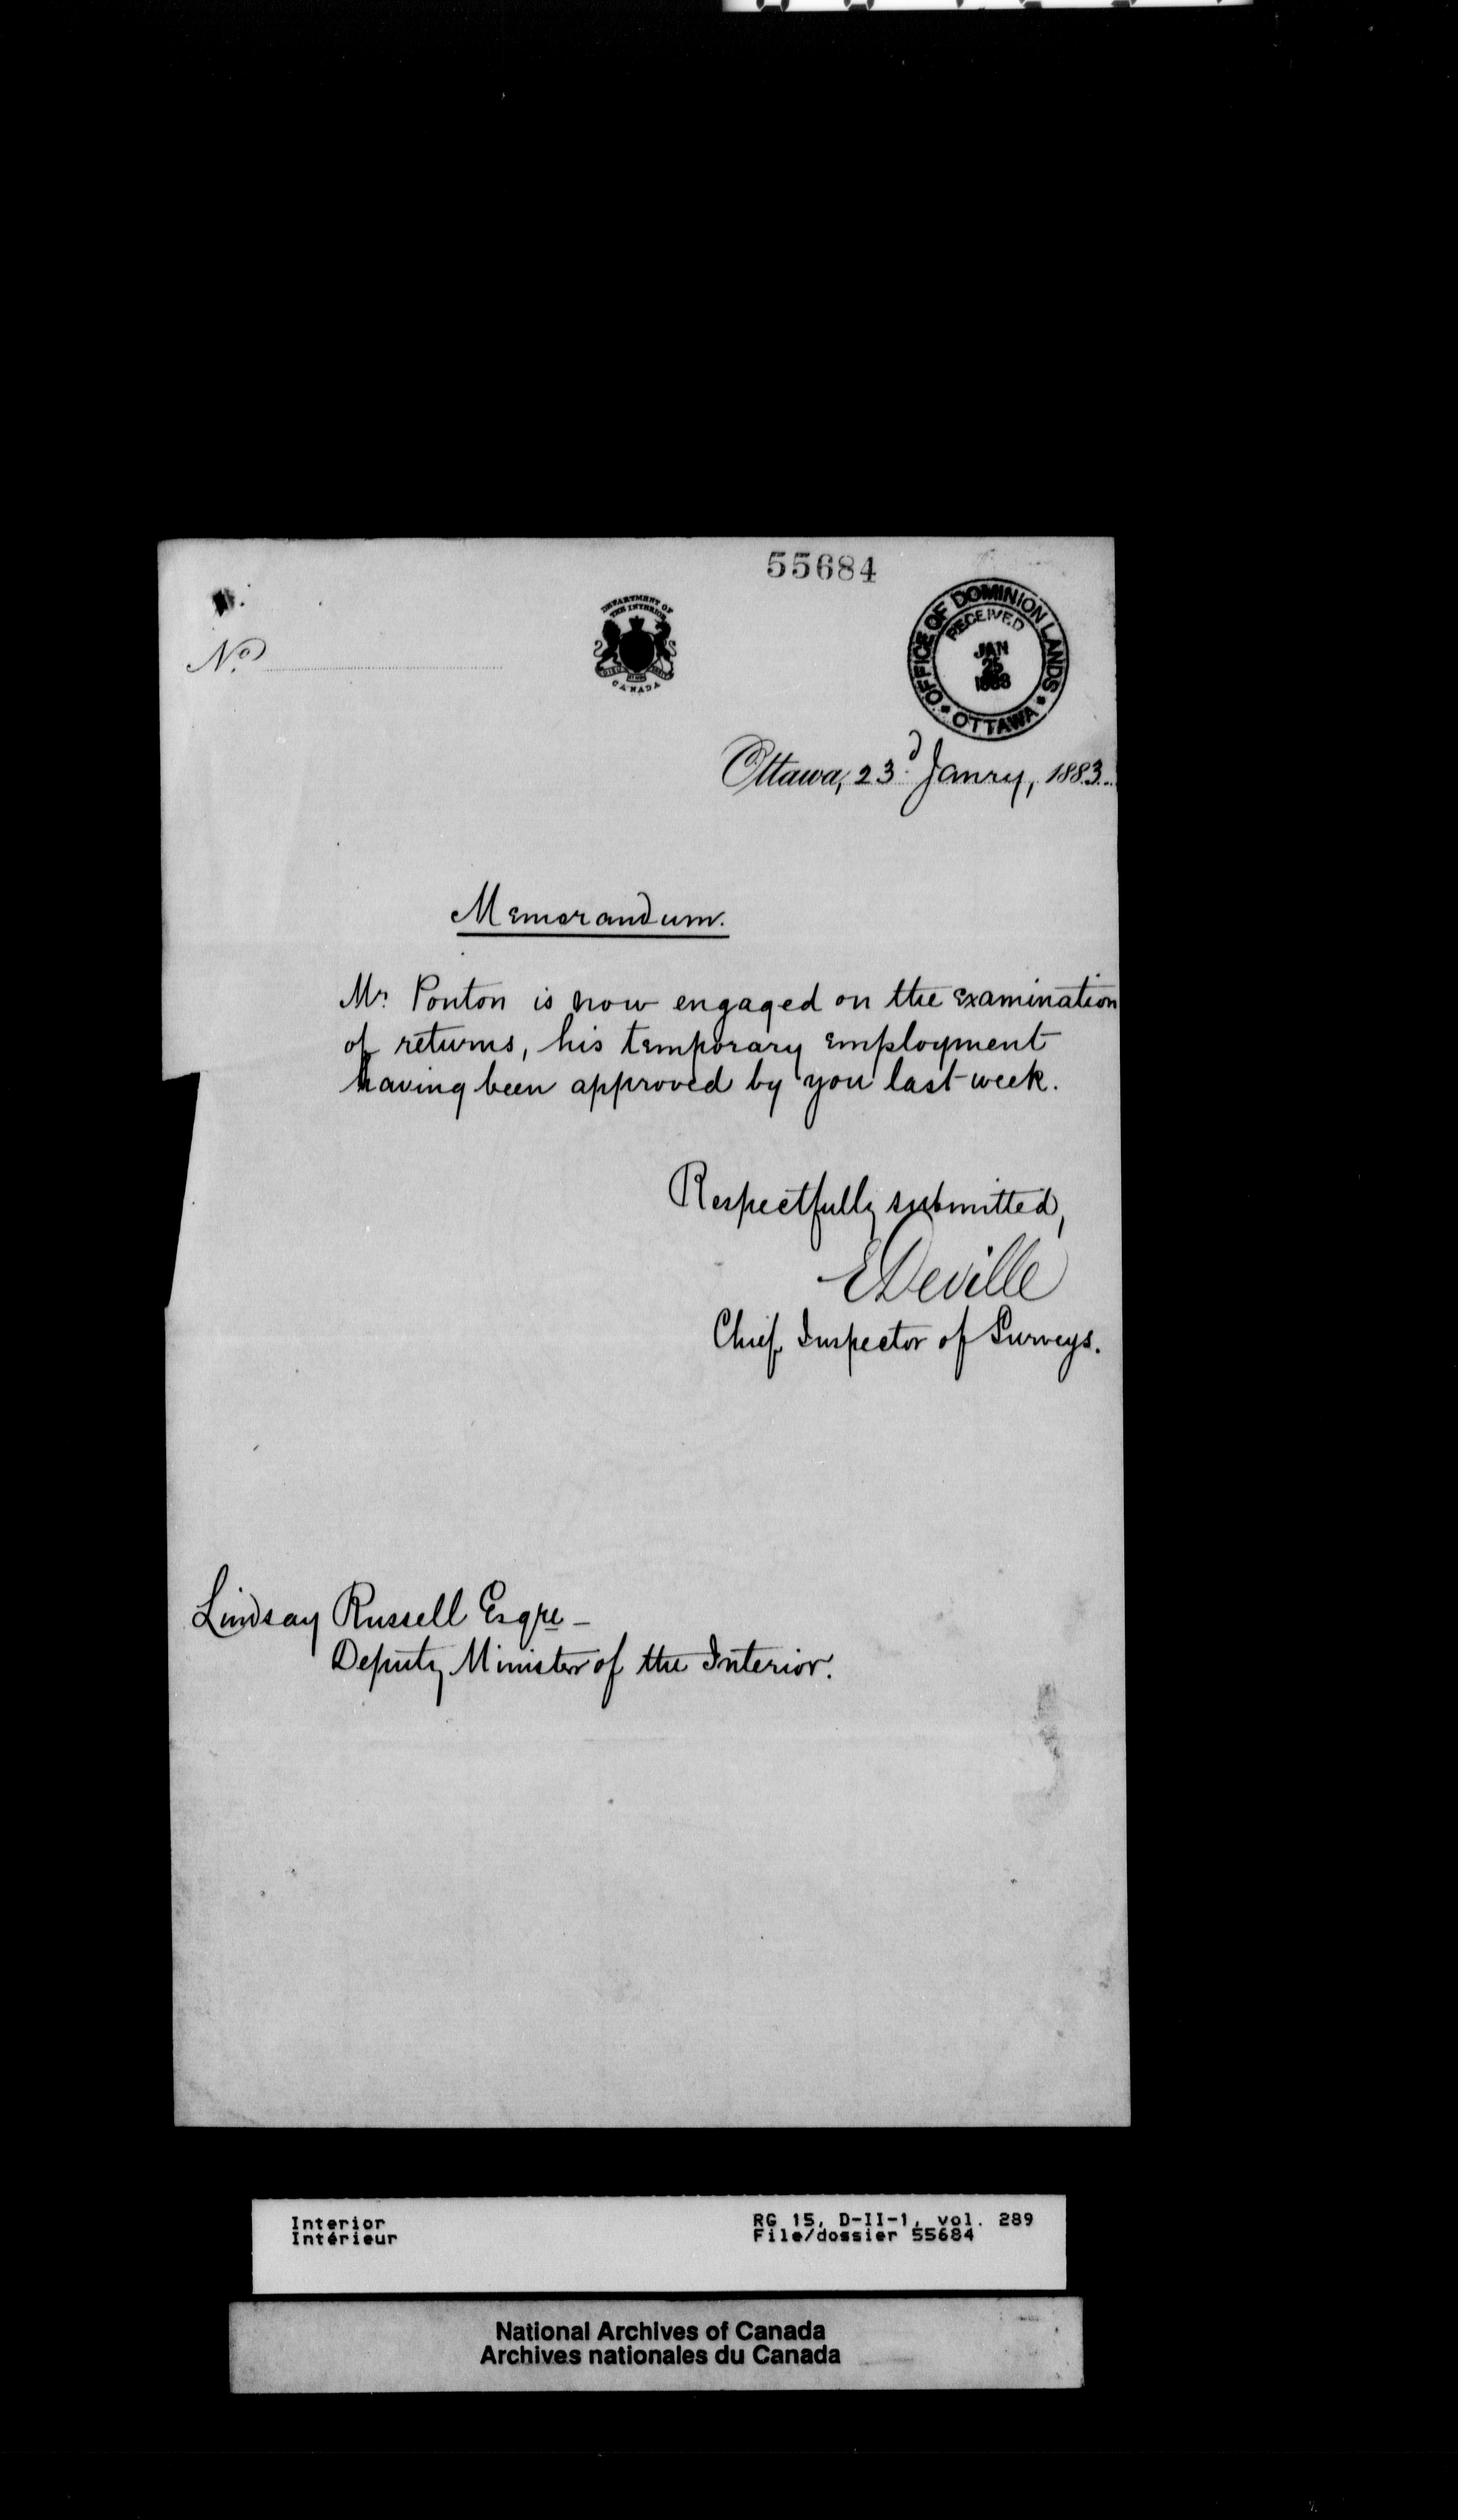 55684
No.
DEPARTMENT OF
THE INTERIOR
CANADA
OFFICE OF DOMINION LANDS
RECEIVED
JAN
25
1883
OTTAWA
Ottawa, 23d Janry, 1883.
Memorandum.
Mr. Ponton is now engaged on the examination
of returns, his temporary employment
having been approved by you last week.
Respectfully submitted,
E Deville
Chief Inspector of Surveys.
Lindsay Russell Esqre –
Deputy Minister of the Interior.
Interior
Intérieur
RG 15, D-II-1, vol. 289
File/dossier 55684
National Archives of Canada
Archives nationales du Canada